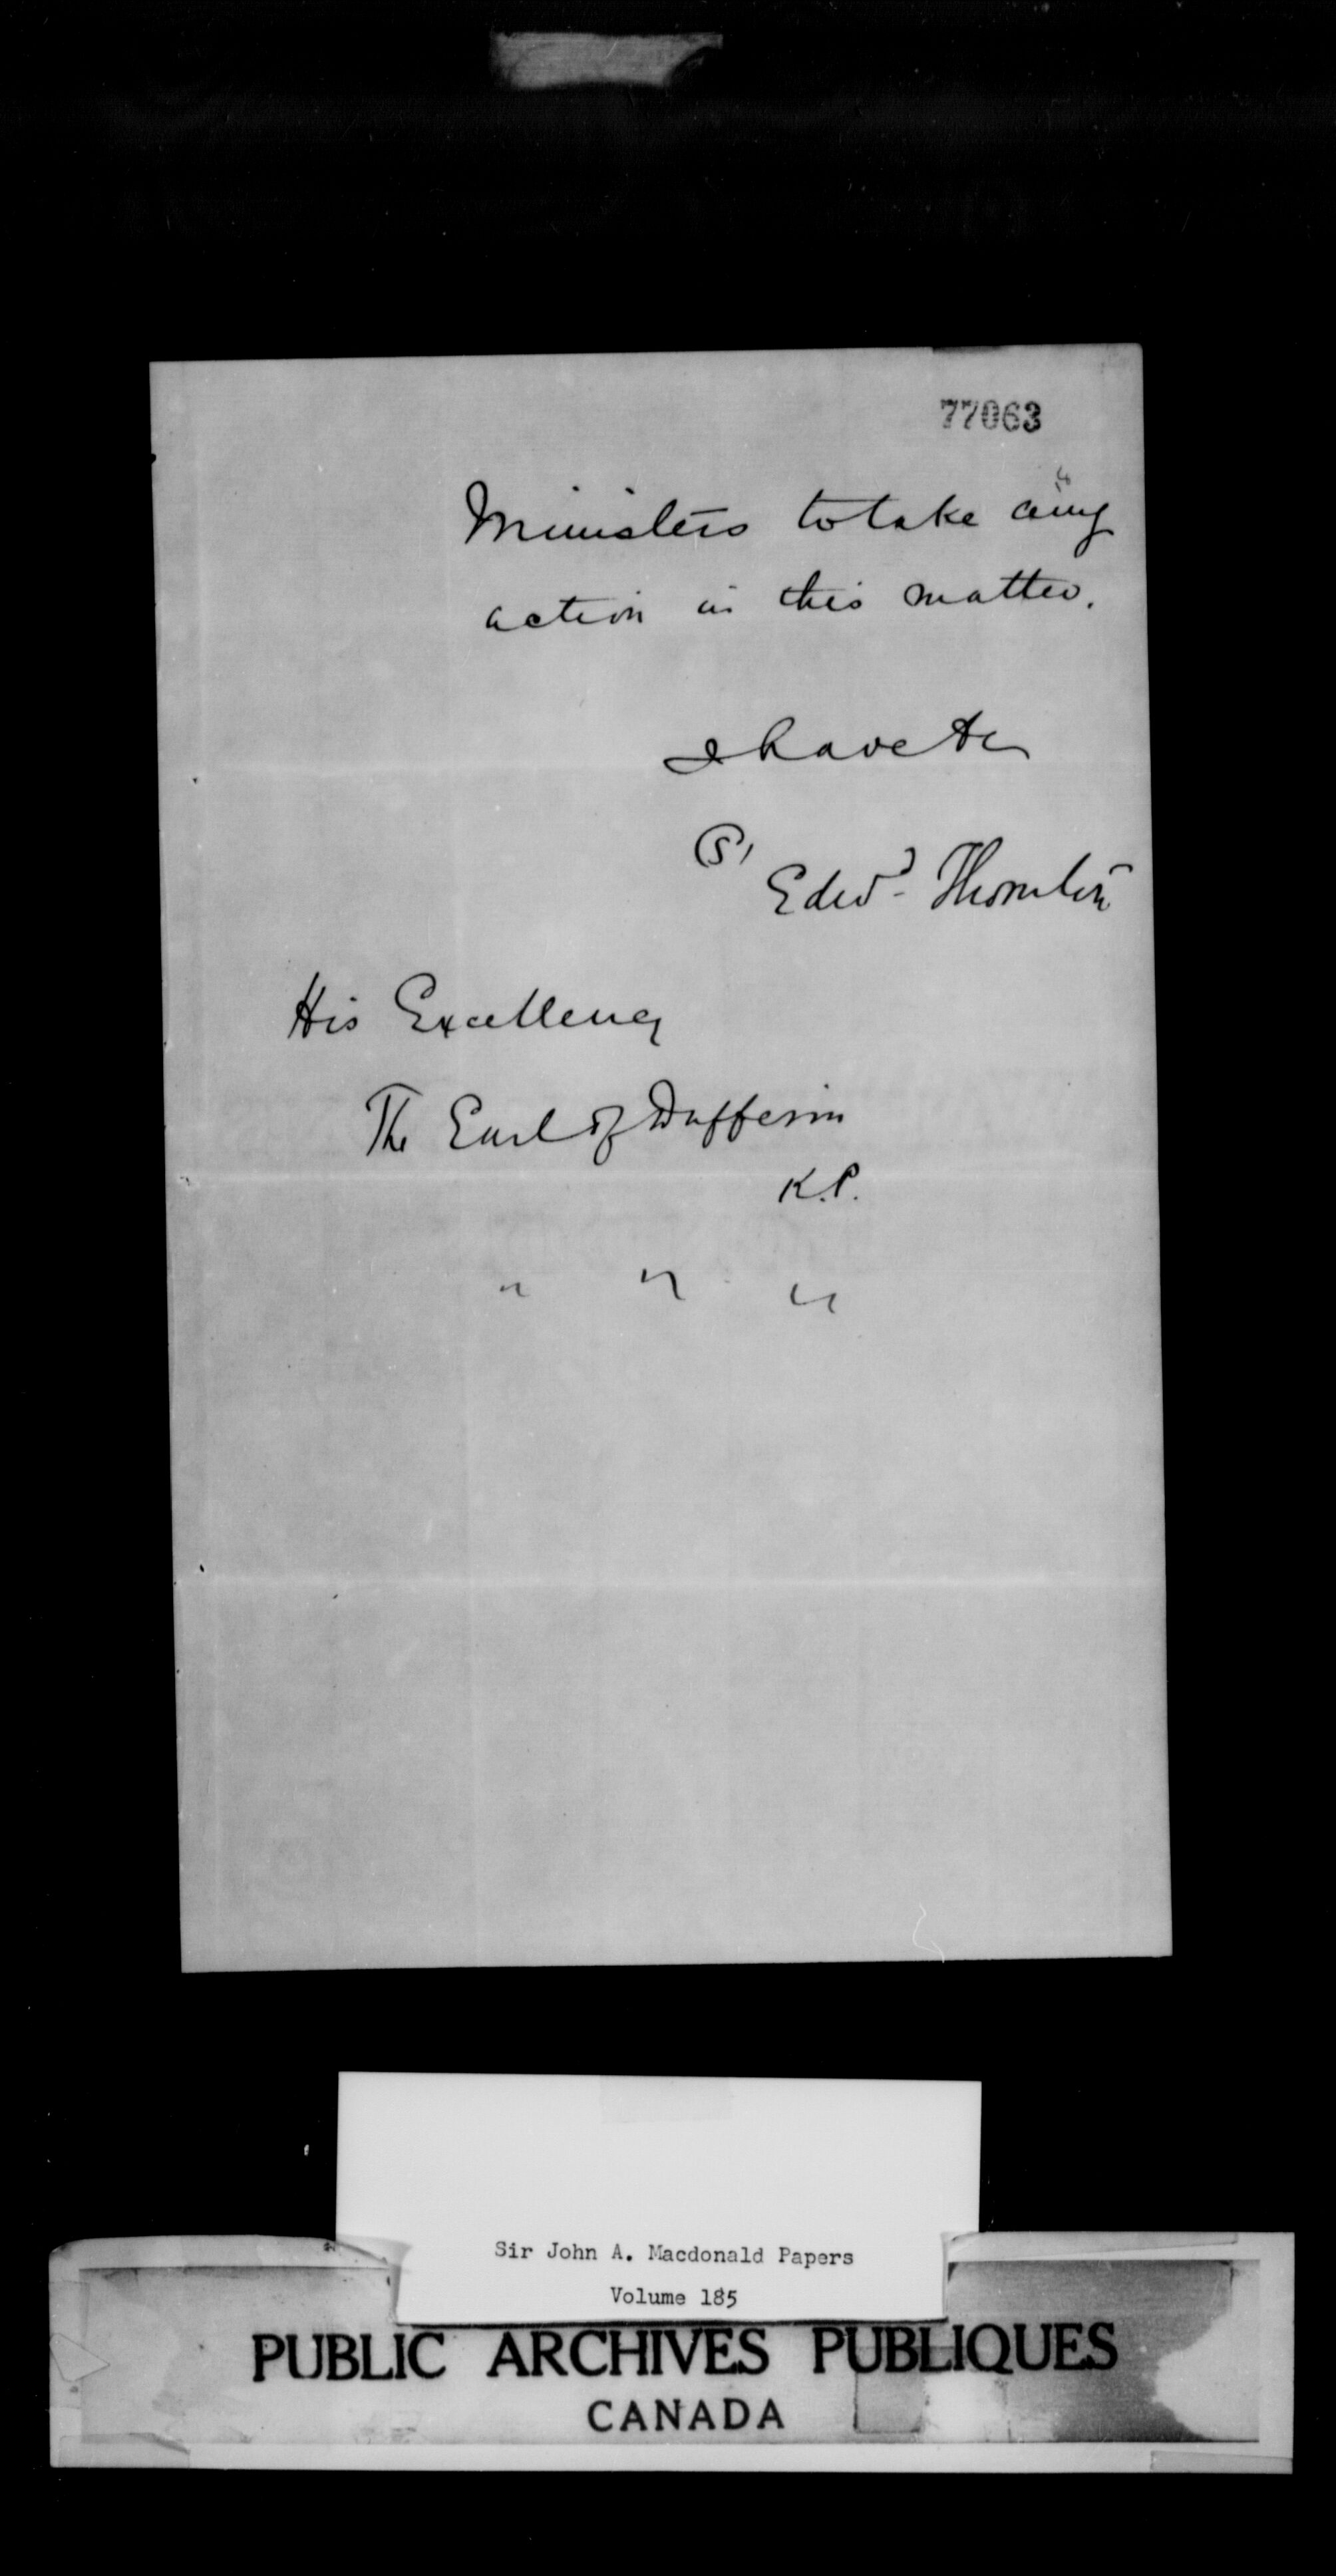 77063
Ministers to take any
action in this matter.
I have &c
(S)
Edwd Thornton
His Excellency
The Earl of Dufferin
K.P.
" " "
Sir John A. Macdonald Papers
Volume 185
PUBLIC ARCHIVES PUBLIQUES
CANADA